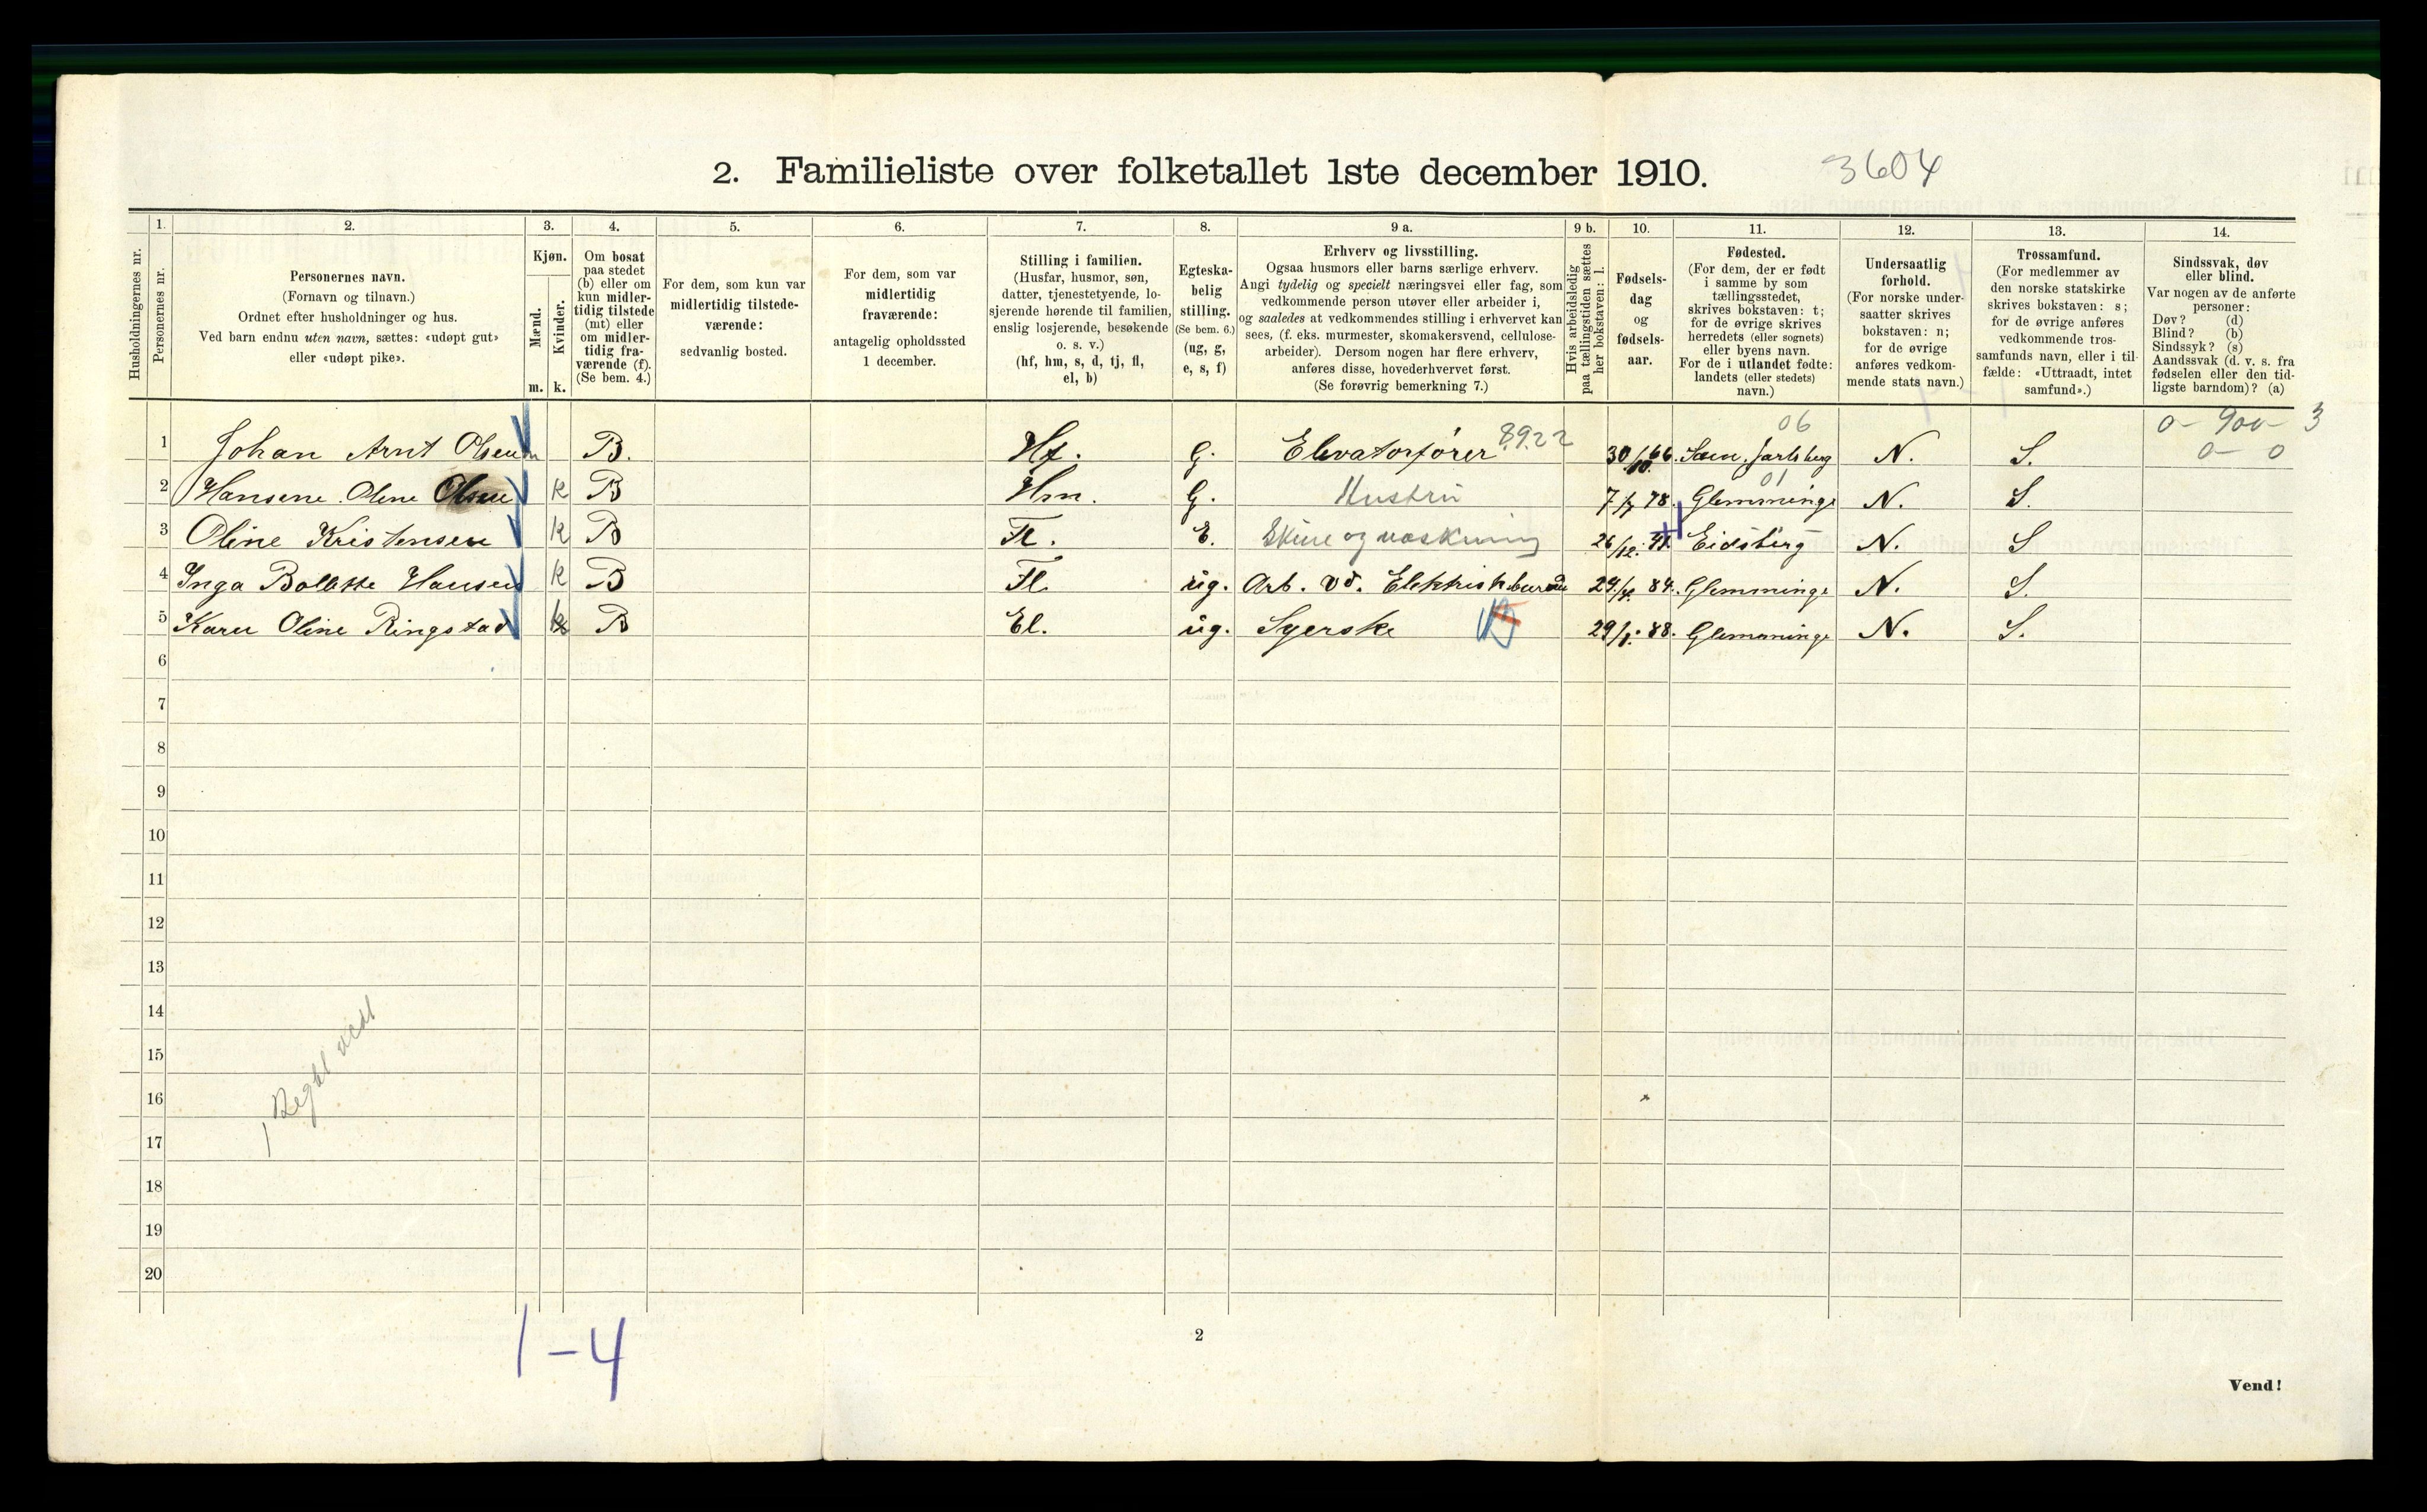 2. Familieliste over folketallet 1ste december 1910. 3604
Husholdningernes nr.
1.
Personernes nr.
2.
Personernes navn.
(Fornavn og tilnavn.)
Ordnet efter husholdninger og hus.
Ved barn endnu uten navn, sættes: «udøpt gut»
eller «udøpt pike».
3.
Kjøn.
Mænd.
m.
Kvinder.
k.
4.
Om bosat
paa stedet
(b) eller om
kun midler-
tidig tilstede
(mt) eller
om midler-
tidig fra-
værende (f).
(Se bem. 4.)
5.
For dem, som kun var
midlertidig tilstede-
værende:
sedvanlig bosted.
6.
For dem, som var
midlertidig
fraværende:
antagelig opholdssted
1 december.
7.
Stilling i familien.
(Husfar, husmor, søn,
datter, tjenestetyende, lo-
sjerende hørende til familien,
enslig losjerende, besøkende
o. s. v.)
(hf, hm, s, d, tj, fl,
el, b)
8.
Egteska-
belig
stilling.
(Se bem. 6.)
(ug, g,
e, s, f)
9 a.
Erhverv og livsstilling.
Ogsaa husmors eller barns særlige erhverv.
Angi tydelig og specielt næringsvei eller fag, som
vedkommende person utøver eller arbeider i,
og saaledes at vedkommendes stilling i erhvervet kan
sees, (f. eks. murmester, skomakersvend, cellulose-
arbeider). Dersom nogen har flere erhverv,
anføres disse, hovederhvervet først.
(Se forøvrig bemerkning 7.)
9 b.
Hvis arbeidsledig
paa tællingstiden sættes
her bokstaven: l.
10.
Fødsels-
dag
og
fødsels-
aar.
11.
Fødested.
(For dem, der er født
i samme by som
tællingsstedet,
skrives bokstaven: t;
for de øvrige skrives
herredets (eller sognets)
eller byens navn.
For de i utlandet fødte:
landets (eller stedets)
navn.)
12.
Undersaatlig
forhold.
(For norske under-
saatter skrives
bokstaven: n;
for de øvrige
anføres vedkom-
mende stats navn.)
13.
Trossamfund.
(For medlemmer av
den norske statskirke
skrives bokstaven: s;
for de øvrige anføres
vedkommende tros-
samfunds navn, eller i til-
fælde: «Uttraadt, intet
samfund».)
14.
Sindssvak, døv
eller blind.
Var nogen av de anførte
personer:
Døv? (d)
Blind? (b)
Sindssyk? (s)
Aandssvak (d. v. s. fra
fødselen eller den tid-
ligste barndom)? (a)
06 0 - 900 - 3
1 Johan Arnt Olsen m B. Hf. G. Elevatorfører 8922 30/10. 66. Sem. Jarlsberg N. S. 0 - 0
01
2 Hansine Oline Olsen k B Hm. G. Hustru 7/7 78. Glemminge N. S.
3 Oline Kristensen k B Fl. E. Skure og vaskning 26/12. Eidsberg N. S
4 Inga Bolette Hansen k B Fl. ug. Arb. vd. Elektriskbureau 84. Glemminge N. S.
5 Karen Oline Ringstad k B El. ug. Syerske 29/1. 88. Glemminge N. S.
6
7
8
9
10
11
12
13
14
15
16
17
18
19
20
1-4
2
Vend!